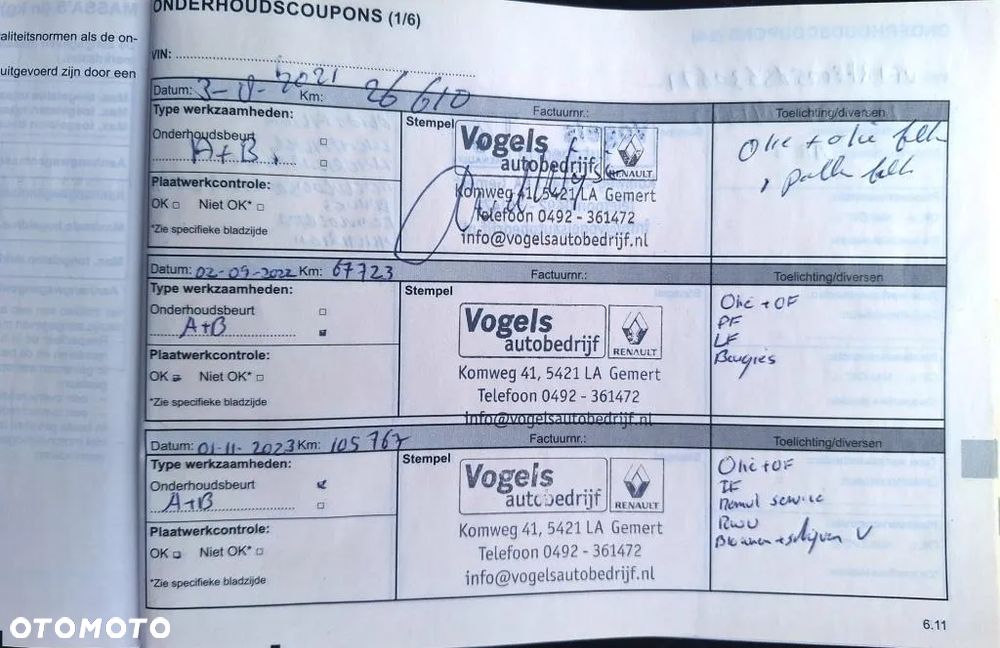 ONDERHOUDSCOUPONS (1/6)
aliteitsnormen als de on-
uitgevoerd zijn door een
VIN:
Datum: 3- 2021 Km: 26610
Type werkzaamheden:
Factuurnr.:
Toelichting/diversen
Stempel
Onderhoudsbeurt
A+B
Vogels
autobedrijf
RENAULT
Olie + olie
Plaatwerkcontrole:
Komweg 41, 5421 LA Gemert
OK Niet OK*
Telefoon 0492 - 361472
*Zie specifieke bladzijde
info@vogelsautobedrijf.nl
Datum: 02-09-2022 Km: 67723
Factuurnr.:
Toelichting/diversen
Type werkzaamheden:
Stempel
Onderhoudsbeurt
A+B
Vogels
autobedrijf
RENAULT
Olie + OF
PF
LF
Bougies
Plaatwerkcontrole:
Komweg 41, 5421 LA Gemert
OK Niet OK*
Telefoon 0492 - 361472
*Zie specifieke bladzijde
info@vogelsautobedrijf.nl
Datum: 01-11-2023 Km: 105767
Factuurnr.:
Toelichting/diversen
Type werkzaamheden:
Stempel
Onderhoudsbeurt
A+B
Vogels
autobedrijf
RENAULT
Olie + OF
IF
Plaatwerkcontrole:
Komweg 41, 5421 LA Gemert
OK Niet OK*
Telefoon 0492 - 361472
*Zie specifieke bladzijde
info@vogelsautobedrijf.nl
6.11
OTOMOTO